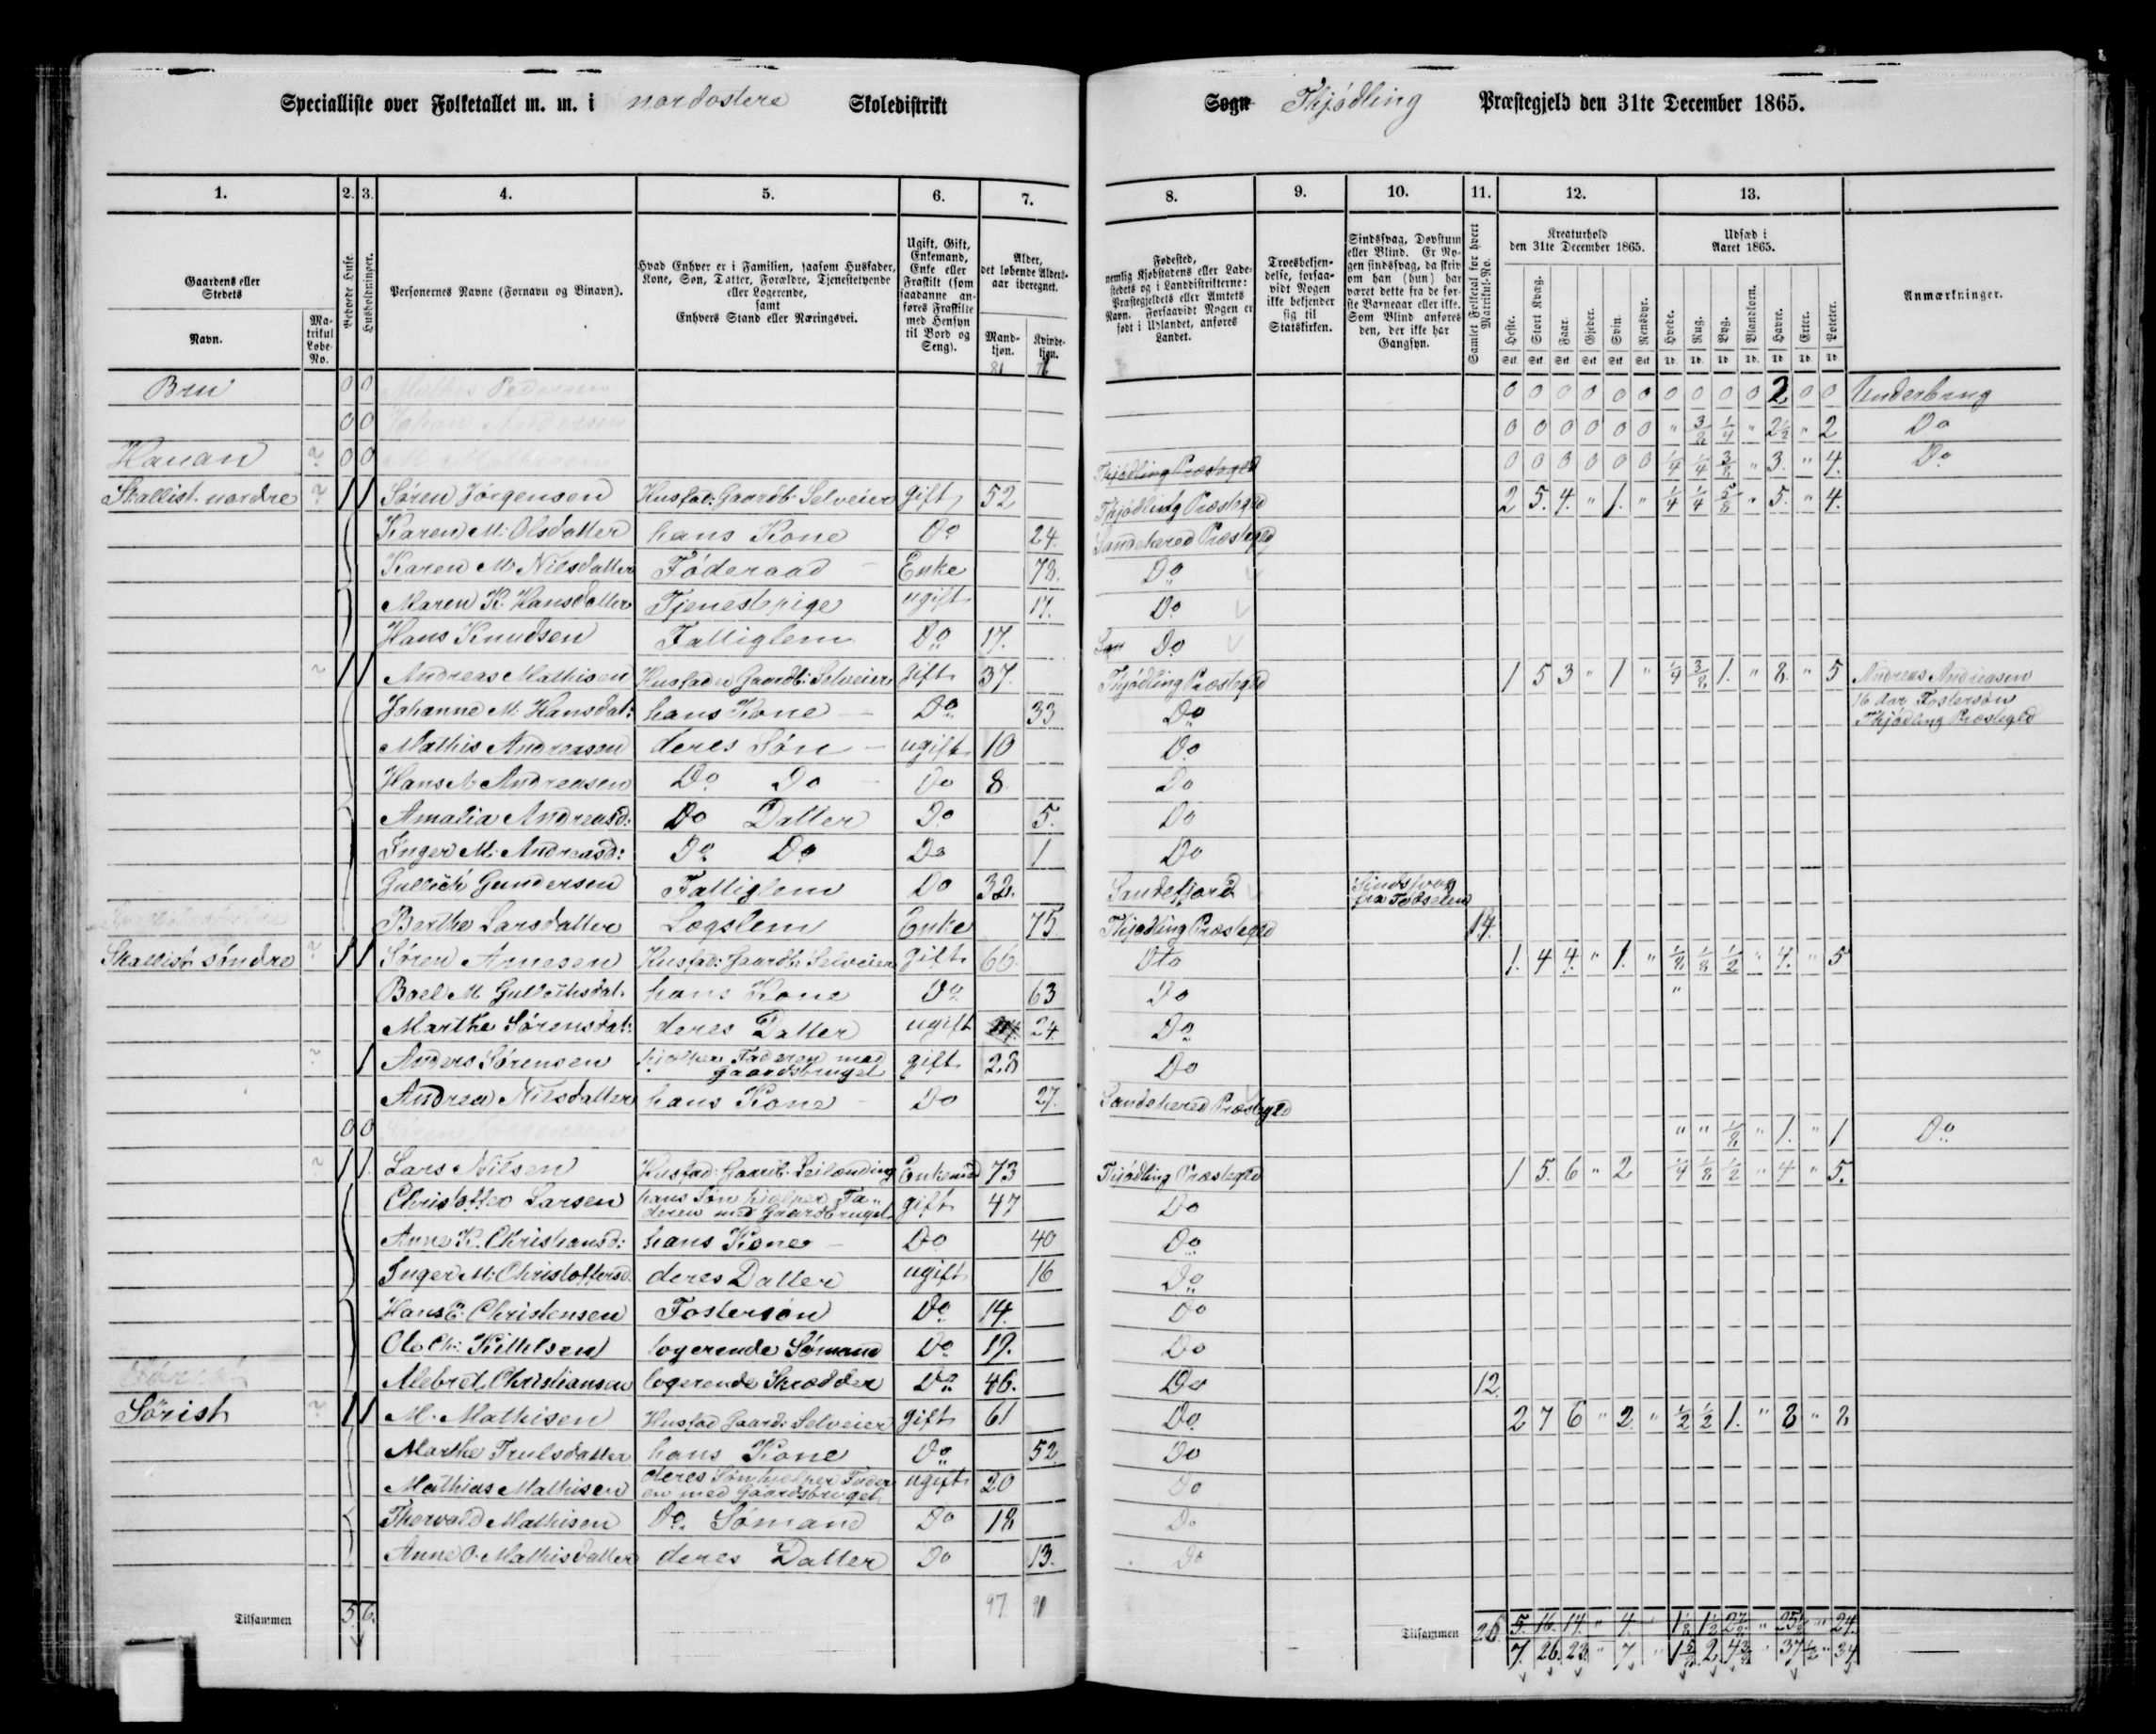 Specialliste over Folketallet m. m. i nordostere Skoledistrikt
Sogn Thjødling Præstegjeld den 31te December 1865.
1. 2. 3. 4. 5. 6. 7. 8. 9. 10. 11. 12. 13.
Gaardens eller Stedets
Navn.
Matrikul Løbe-No.
Beboede Huse.
Husholdninger.
Personernes Navne (Fornavn og Binavn).
Hvad Enhver er i Familien, saasom Husfader, Kone, Søn, Datter, Forældre, Tjenestetyende eller Logerende, samt Enhvers Stand eller Næringsvei.
Ugift, Gift, Enkemand, Enke eller Fraskilt (som saadanne anføres Fraskilte med Hensyn til Bord og Seng).
Alder, det løbende Alders-aar iberegnet.
Mandkjøn.
Kvindekjøn.
Fødested, nemlig Kjøbstadens eller Ladestedets og i Landdistrikterne: Præstegjeldets eller Amtets Navn. Forsaavidt Nogen er født i Udlandet, anføres Landet.
Troesbekjendelse, forsaavidt Nogen ikke bekjender sig til Statskirken.
Sindssvag, Døvstum eller Blind. Er Nogen sindssvag, da skriv om han (hun) har været dette fra de første Barneaar eller ikke. Som Blind anføres den, der ikke har Gangsyn.
Samlet Folketal for hvert Matrikul-No.
Kreaturhold den 31te December 1865.
Heste. Stort Kvæg. Faar. Gjeder. Svin. Rensdyr.
Udsæd i Aaret 1865.
Hvede. Rug. Byg. Blandkorn. Havre. Erter. Poteter.
Anmærkninger.
81 71
Bru 0 0 Mathis Pedersen 0 0 0 0 0 0 0 0 0 0 2 0 0 Underbrug
0 0 Johan Andersen 0 0 0 0 0 0 " 3/8 1/4 " 2 1/2 " 2 Do
Hauan ? 0 0 Thjødling Præstegld 0 0 0 0 0 0 1/4 1/4 3/8 " 3. " 4. Do
Skallist nordre ? 1 1 Søren Jørgensen Husfad: Gaardb: Selveier gift 52 Thjødling Præstegld 2 5. 4. " 1. " 1/4 1/4 5/8 " 5. " 4.
Karen M: Olsdatter hans Kone Do 24. Sandehered Præstegld
Karen M: Nilsdatter Føderaad Enke 78. Do
Maren K: Hansdatter Tjenestpige ugift 17. Do
Hans Knudsen Fattiglem Do 17. Do
? 1 1 Andreas Mathisen Husfader Gaardb: Selveier gift 37. Thjødling Præstegld 1 5 3 " 1 " 1/4 3/8 1. " 8. " 5 Andreas Andreasen
16 Aar Fostersøn
Thjødling Præstegld
Johanne M: Hansdat: hans Kone Do 33 Do
Mathis Andreasen deres Søn ugift 10 Do
Hans M: Andreasen Do Do Do 8. Do
Amalia Andreasd: Do Datter Do 5. Do
Inger M: Andreasd: Do Do Do 1 Do
Gullich Gundersen Fattiglem Do 32. Sandefjord Sindssvag
fra Fødselen
Berthe Larsdatter Lægslem Enke 75. Thjødling Præstegld 14.
Skallist søndre ? 1 1 Søren Arnesen Husfad: Gaardb: Selveier gift 66 Dto 1. 4 4. " 1. " 1/8 1/8 1/2 " 4. " 5
Boel M Gullichsdat. hans Kone Do 63 Do "
Marthe Sørensdat: deres Datter ugift 24. Do
? 1 Anders Sørensen hjælper Faderen med
gaardsbruget gift 28 Do
Andrea Nilsdatter hans Kone Do 27. Sandehered Præstegld
0 0 Søren Jørgensen " " 1/8 " 1. " 1 Do
? 1 1. Lars Nilsen Husfad: Gaardb: Leilænding Enkemd 73 Thjødling Præstegld 1 5. 6 " 2 1/4 1/8 1/2 " 4 " 5.
Christoffer Larsen hans Søn hjælper Fa-
deren med Gaardbruget gift 47 Do
Anne K. Christiansd: hans Kone Do 40 Do
Inger M: Christoffersd. deres Datter ugift 16 Do
Hans E: Christensen Fostersøn Do 14. Do
Ole Ch: Kittilsen logerende Sømand Do 19. Do
Alebret Christiansen logerende Skrædder Do 46. Do 12.
Sørist ? 1 1 M. Mathisen Husfad Gaard: Selveier gift 61 Do 2 7 6 " 2 " 1/2 1/2 1. " 8 " 8
Marthe Trulsdatter hans Kone Do 52 Do
Mathias Mathisen deres Søn hjælper Fader
en med Gaardsbruget ugift 20 Do
Thorvald Mathisen Do Sømand Do 18 Do
Anne O. Mathisdatter deres Datter Do 13. Do
97 91
Tilsammen 5 6. Tilsammen 26 5. 16. 14. " 4. 1 1/8 1 1/2 " 25 1/2 " 24.
7. 26. 23. " 7 " 1 5/8 2 4 3/8 " 37 1/2 " 34